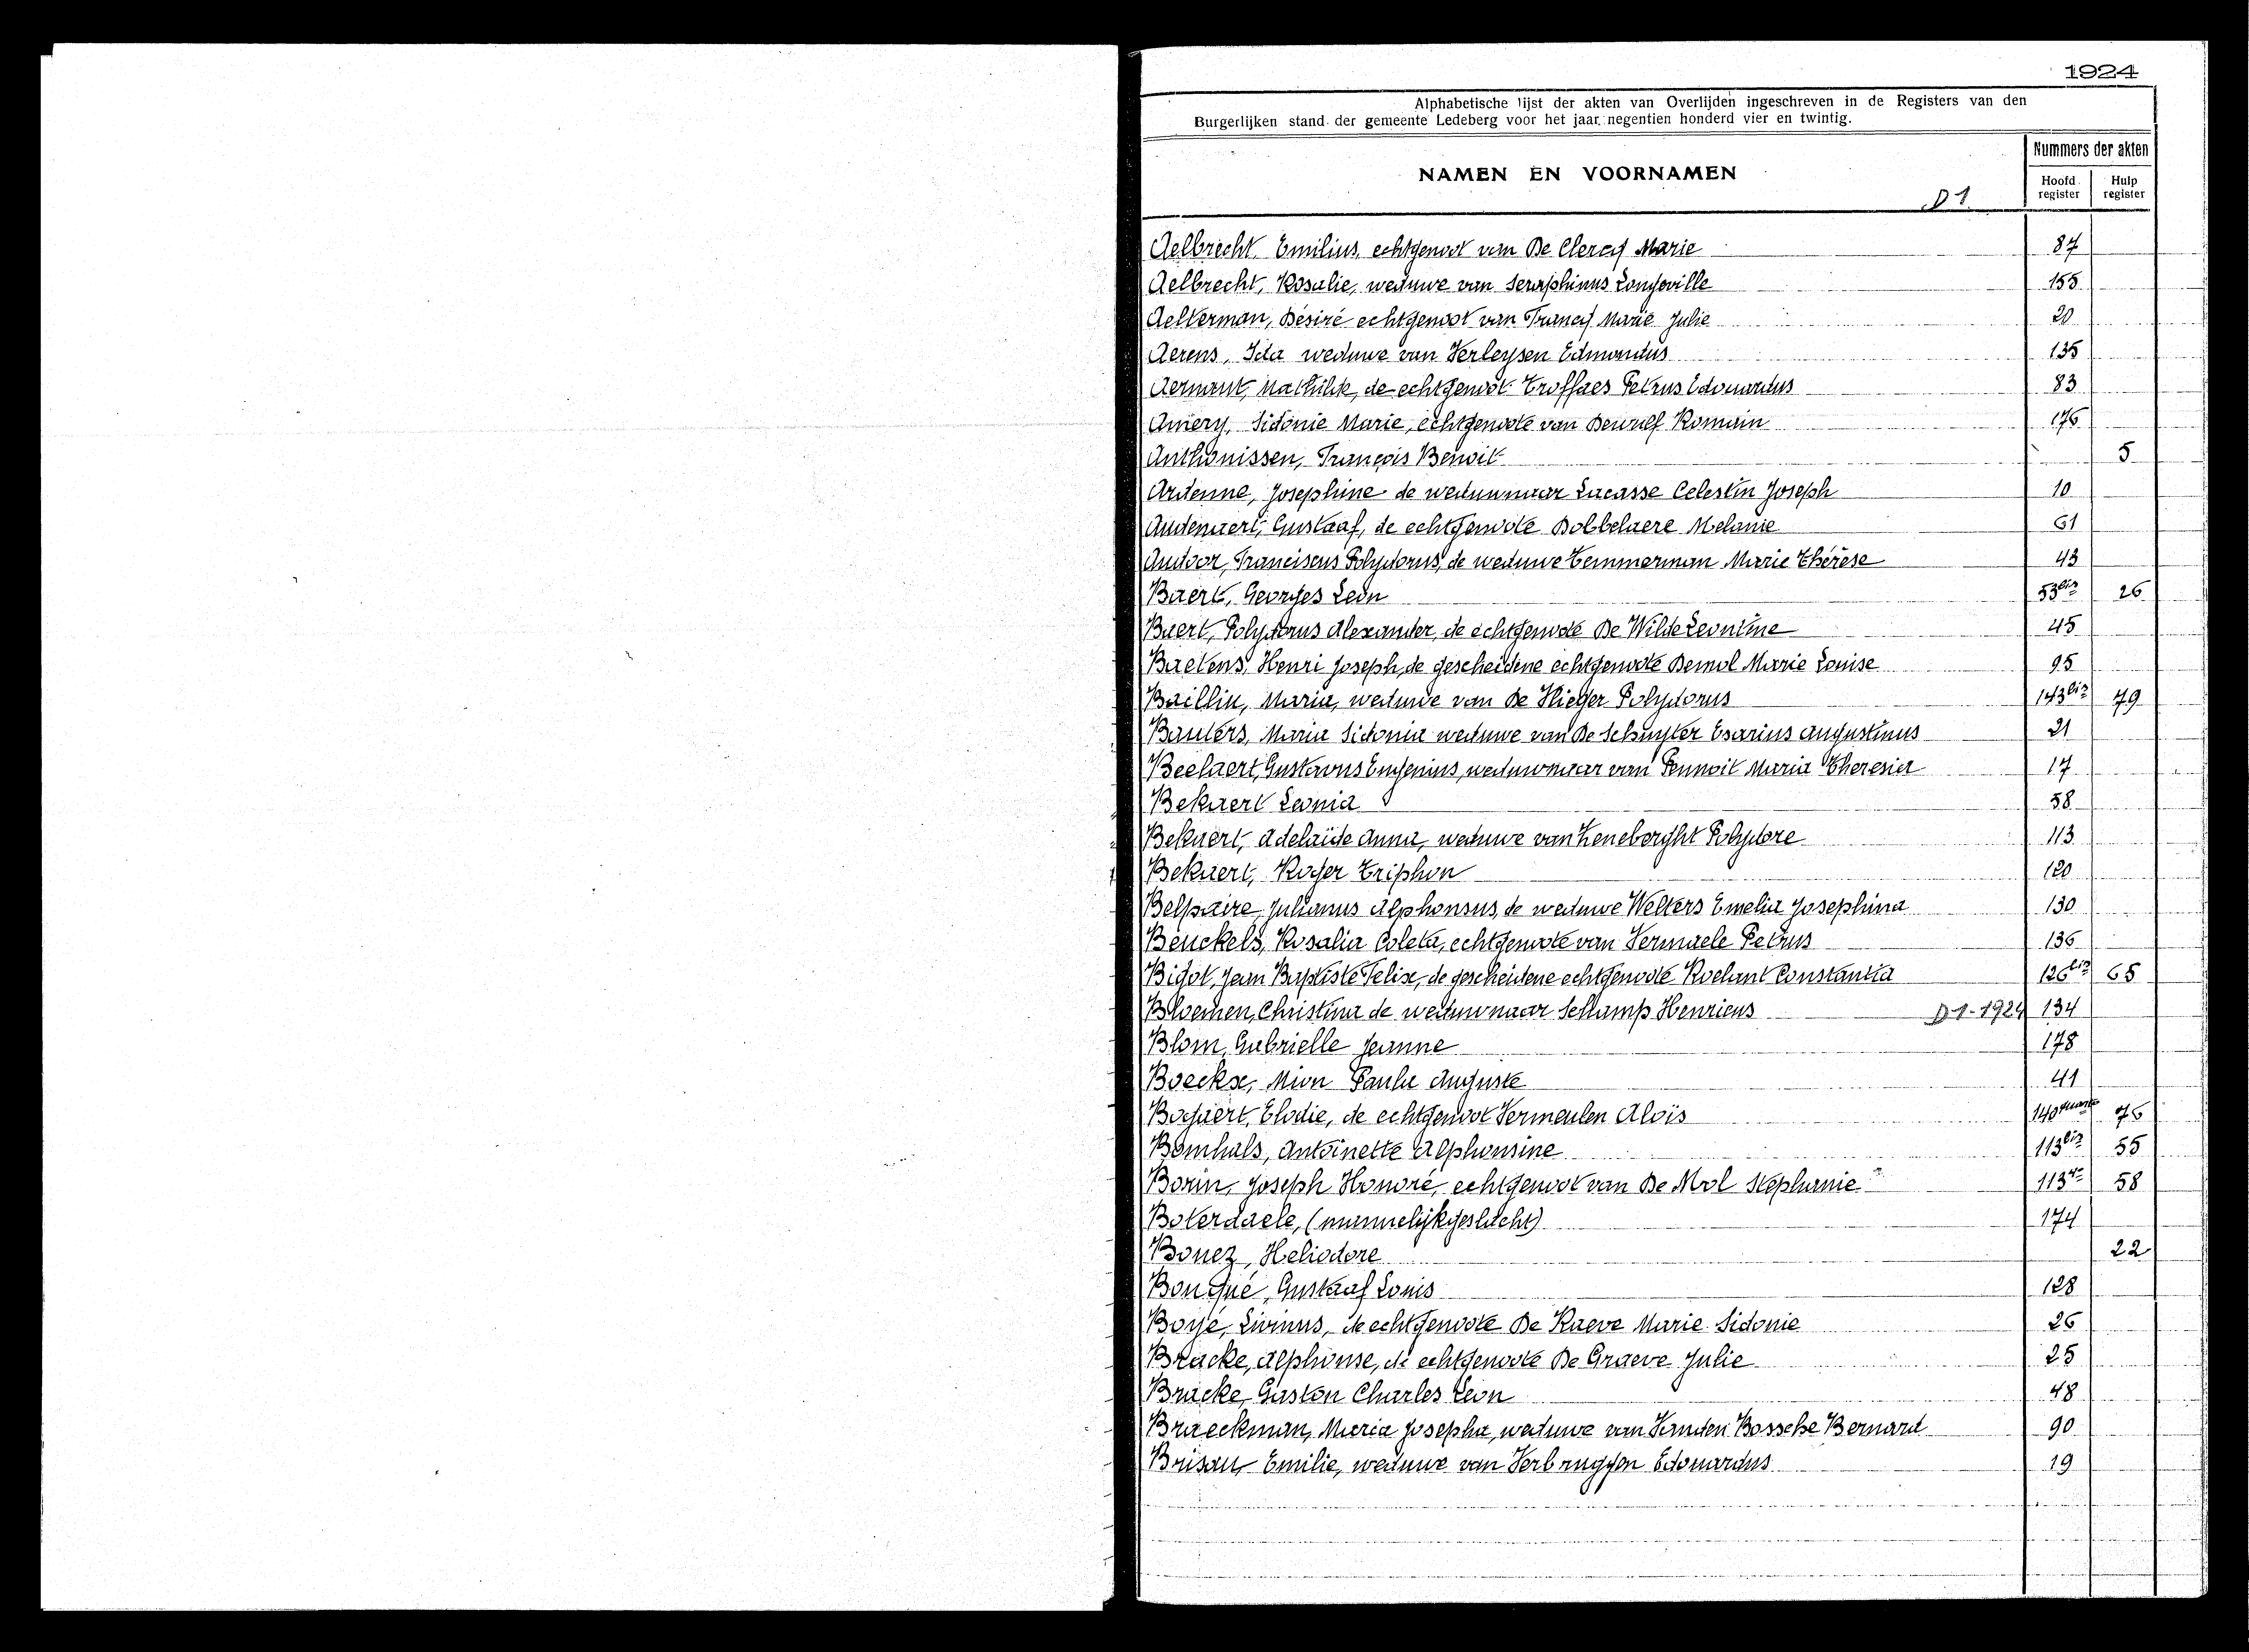 1924
Alphabetische lijst der akten van Overlijden ingeschreven in de Registers van den
Burgerlijken stand der gemeente Ledeberg voor het jaar negentien honderd vier en twintig.
NAMEN EN VOORNAMEN
Nummers der akten
Hoofd register Hulp register
D 1
Aelbrecht Emilius, echtgenoot van De Clercq Marie 87
Aelbrecht, Rosalie, weduwe van Seraphinus Longeville 155
Aelterman, Désiré echtgenoot van Francq Marie Julie 20
Aerens, Ida weduwe van Verleysen Edmondus 135
Aernaut, Mathilde, de echtgenoot Troffaes Petrus Edouardus 83
Amery, Sidonie Marie, echtgenoote van Dewulf Romain 176
Anthonissen, François Benoit 5
Ardenne, Josephine de weduwnaar Lucasse Celestin Joseph 10
Audenaert, Gustaaf, de echtgenoote Dobbelaere Melanie 61
Audoor, Franciscus Polydorus, de weduwe Temmerman Marie Thérèse 43
Baert, Georges Leon 53bis 26
Baert, Polydorus Alexander, de echtgenoote De Wilde Leontine 45
Baetens, Henri Joseph, de gescheidene echtgenoote Demol Marie Louise 95
Baillin, Maria, weduwe van De Vlieger Polydorus 143bis 79
Bauters, Maria Sidonia weduwe van De Schuyter Esarius Augustinus 21
Beelaert, Gustavus Eugenius, weduwnaar van Pennoit Maria Theresia 17
Bekaert Leonia 58
Bekaert, Adelaïde Anna, weduwe van Heneberght Polydore 113
Bekaert, Roger Triphon 120
Belpaire, Julianus Alphonsus, de weduwe Welters Emelia Josephina 130
Beuckels, Rosalia Coleta, echtgenoote van Vermaele Petrus 136
Bigot, Jean Baptiste Felix, de gescheidene echtgenoote Roelant Constantia 126bis 65
Bloemen, Christina de weduwnaar Schamp Henricus D 1-1924 134
Blom, Gabrielle Jeanne 178
Boeckx, Mion Paula Auguste 41
Bogaert, Elodie, de echtgenoot Vermeulen Aloïs 140quarto 76
Bomhals, Antoinette Alphonsine 113bis 55
Borin, Joseph Honoré, echtgenoot van De Mol Stephanie 113 58
Boterdaele, (mannelijk geslacht) 174
Bouez, Heliodore 22
Bouqué, Gustaaf Louis 128
Boyé, Livinus, de echtgenoote De Raeve Marie Sidonie 26
Bracke, Alphonse, de echtgenoote De Graeve Julie 25
Bracke Gaston Charles Leon 48
Braeckman, Maria Josepha, weduwe van Vanden Bossche Bernard 90
Brisau, Emilie, weduwe van Verbrugghen Edouardus 19